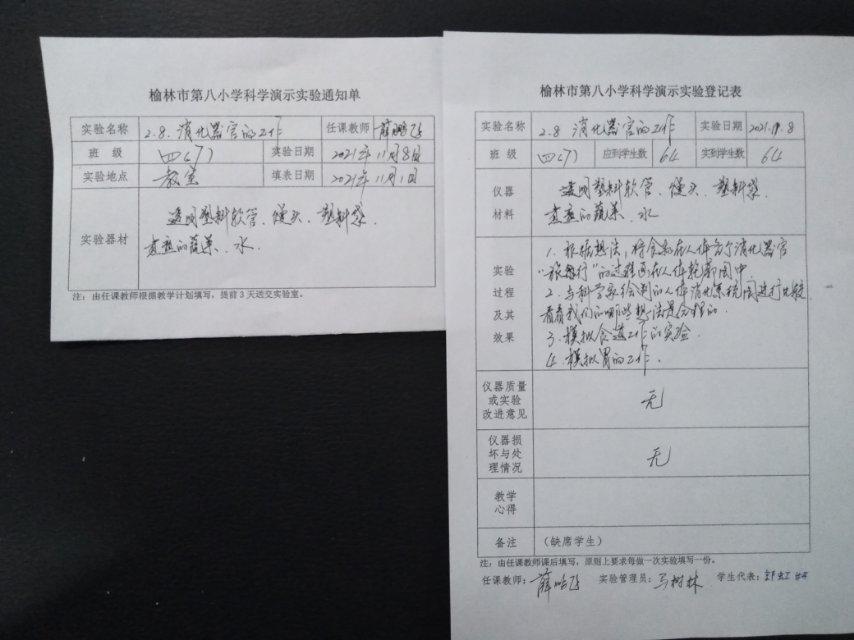 榆林市第八小学科学演示实验通知单
实验名称 2.8.消化器官的工作 任课教师 薛鹏飞
班 级 四(7) 实验日期 2021年11月8日
实验地点 教室 填表日期 2021年11月1日
实验器材 透明塑料软管、馒头、塑料袋、
煮熟的蔬菜、水、
注：由任课教师根据教学计划填写，提前3天送交实验室。
榆林市第八小学科学演示实验登记表
实验名称 2.8 消化器官的工作 实验日期 2021.11.8
班 级 四(7) 应到学生数 64 实到学生数 64
仪器材料 透明塑料软管、馒头、塑料袋、
煮熟的蔬菜、水
实验过程及其效果
1.根据想法，将食物在人体各个消化器官
“旅行”的过程画在人体轮廓图中.
2.与科学家绘制的人体消化系统图进行比较,
看看我们的哪些想法是合理的.
3.模拟食道工作的实验.
4.模拟胃的工作.
仪器质量或实验改进意见 无
仪器损坏与处理情况 无
教学心得
备注 （缺席学生）
注：由任课教师课后填写，原则上要求每做一次实验填写一份。
任课教师：薛鹏飞 实验管理员：马树林 学生代表：